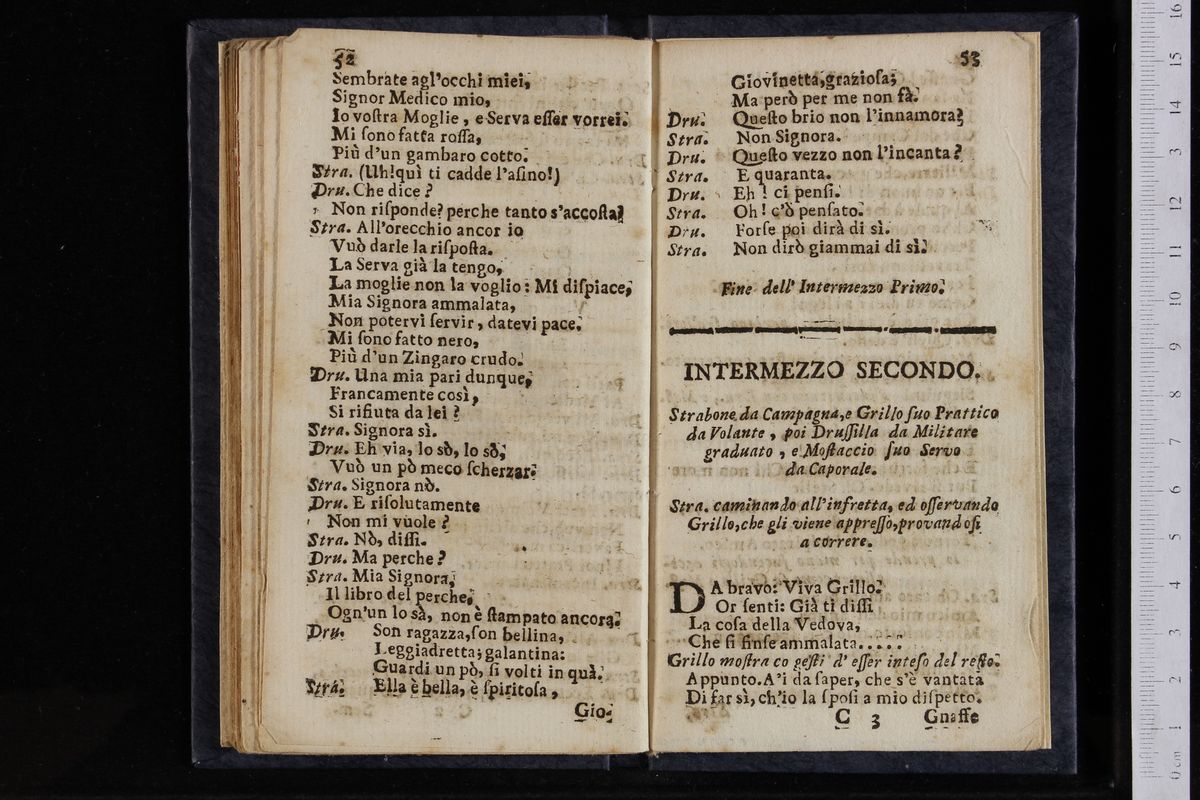 52
Sembrate agl'occhi miei,
Signor Medico mio,
Io voſtra Moglie, e Serva eſſer vorrei.
Mi ſono fatta roſſa,
Più d'un gambaro cotto.
Stra. (Uh! quì ti cadde l'aſino!)
Dru. Che dice?
Non riſponde? perche tanto s'accoſta?
Stra. All'orecchio ancor io
Vuò darle la riſpoſta.
La Serva già la tengo,
La moglie non la voglio: Mi diſpiace,
Mia Signora ammalata,
Non potervi ſervir, datevi pace.
Mi ſono fatto nero,
Più d'un Zingaro crudo.
Dru. Una mia pari dunque,
Francamente così,
Si rifiuta da lei?
Stra. Signora sì.
Dru. Eh via, lo sò, lo sò,
Vuò un pò meco ſcherzar.
Stra. Signora nò.
Dru. E riſolutamente
Non mi vuole?
Stra. Nò, diſſi.
Dru. Ma perche?
Stra. Mia Signora,
Il libro del perche,
Ogn'un lo sà, non è ſtampato ancora.
Dru. Son ragazza, ſon bellina,
Leggiadretta; galantina:
Guardi un pò, ſi volti in quà.
Stra. Ella è bella, è ſpiritoſa,
Gio-
53
Giovinetta, grazioſa;
Ma però per me non fà.
Dru. Queſto brio non l'innamora?
Stra. Non Signora.
Dru. Queſto vezzo non l'incanta?
Stra. E quaranta.
Dru. Eh! ci penſi.
Stra. Oh! c'ò penſato.
Dru. Forſe poi dirà di sì.
Stra. Non dirò giammai di sì.
Fine dell' Intermezzo Primo.
INTERMEZZO SECONDO.
Strabone da Campagna, e Grillo ſuo Prattico
da Volante, poi Druſſilla da Militare
graduato, e Moſtaccio ſuo Servo
da Caporale.
Stra. caminando all'infretta, ed oſſervando
Grillo, che gli viene appreſſo, provandoſi
a correre.
DA bravo: Viva Grillo.
Or ſenti: Già ti diſſi
La coſa della Vedova,
Che ſi finſe ammalata.....
Grillo moſtra co geſti d' eſſer inteſo del reſto.
Appunto. A'i da ſaper, che s'è vantata
Di far sì, ch'io la ſpoſi a mio diſpetto.
C 3 Gnaffe